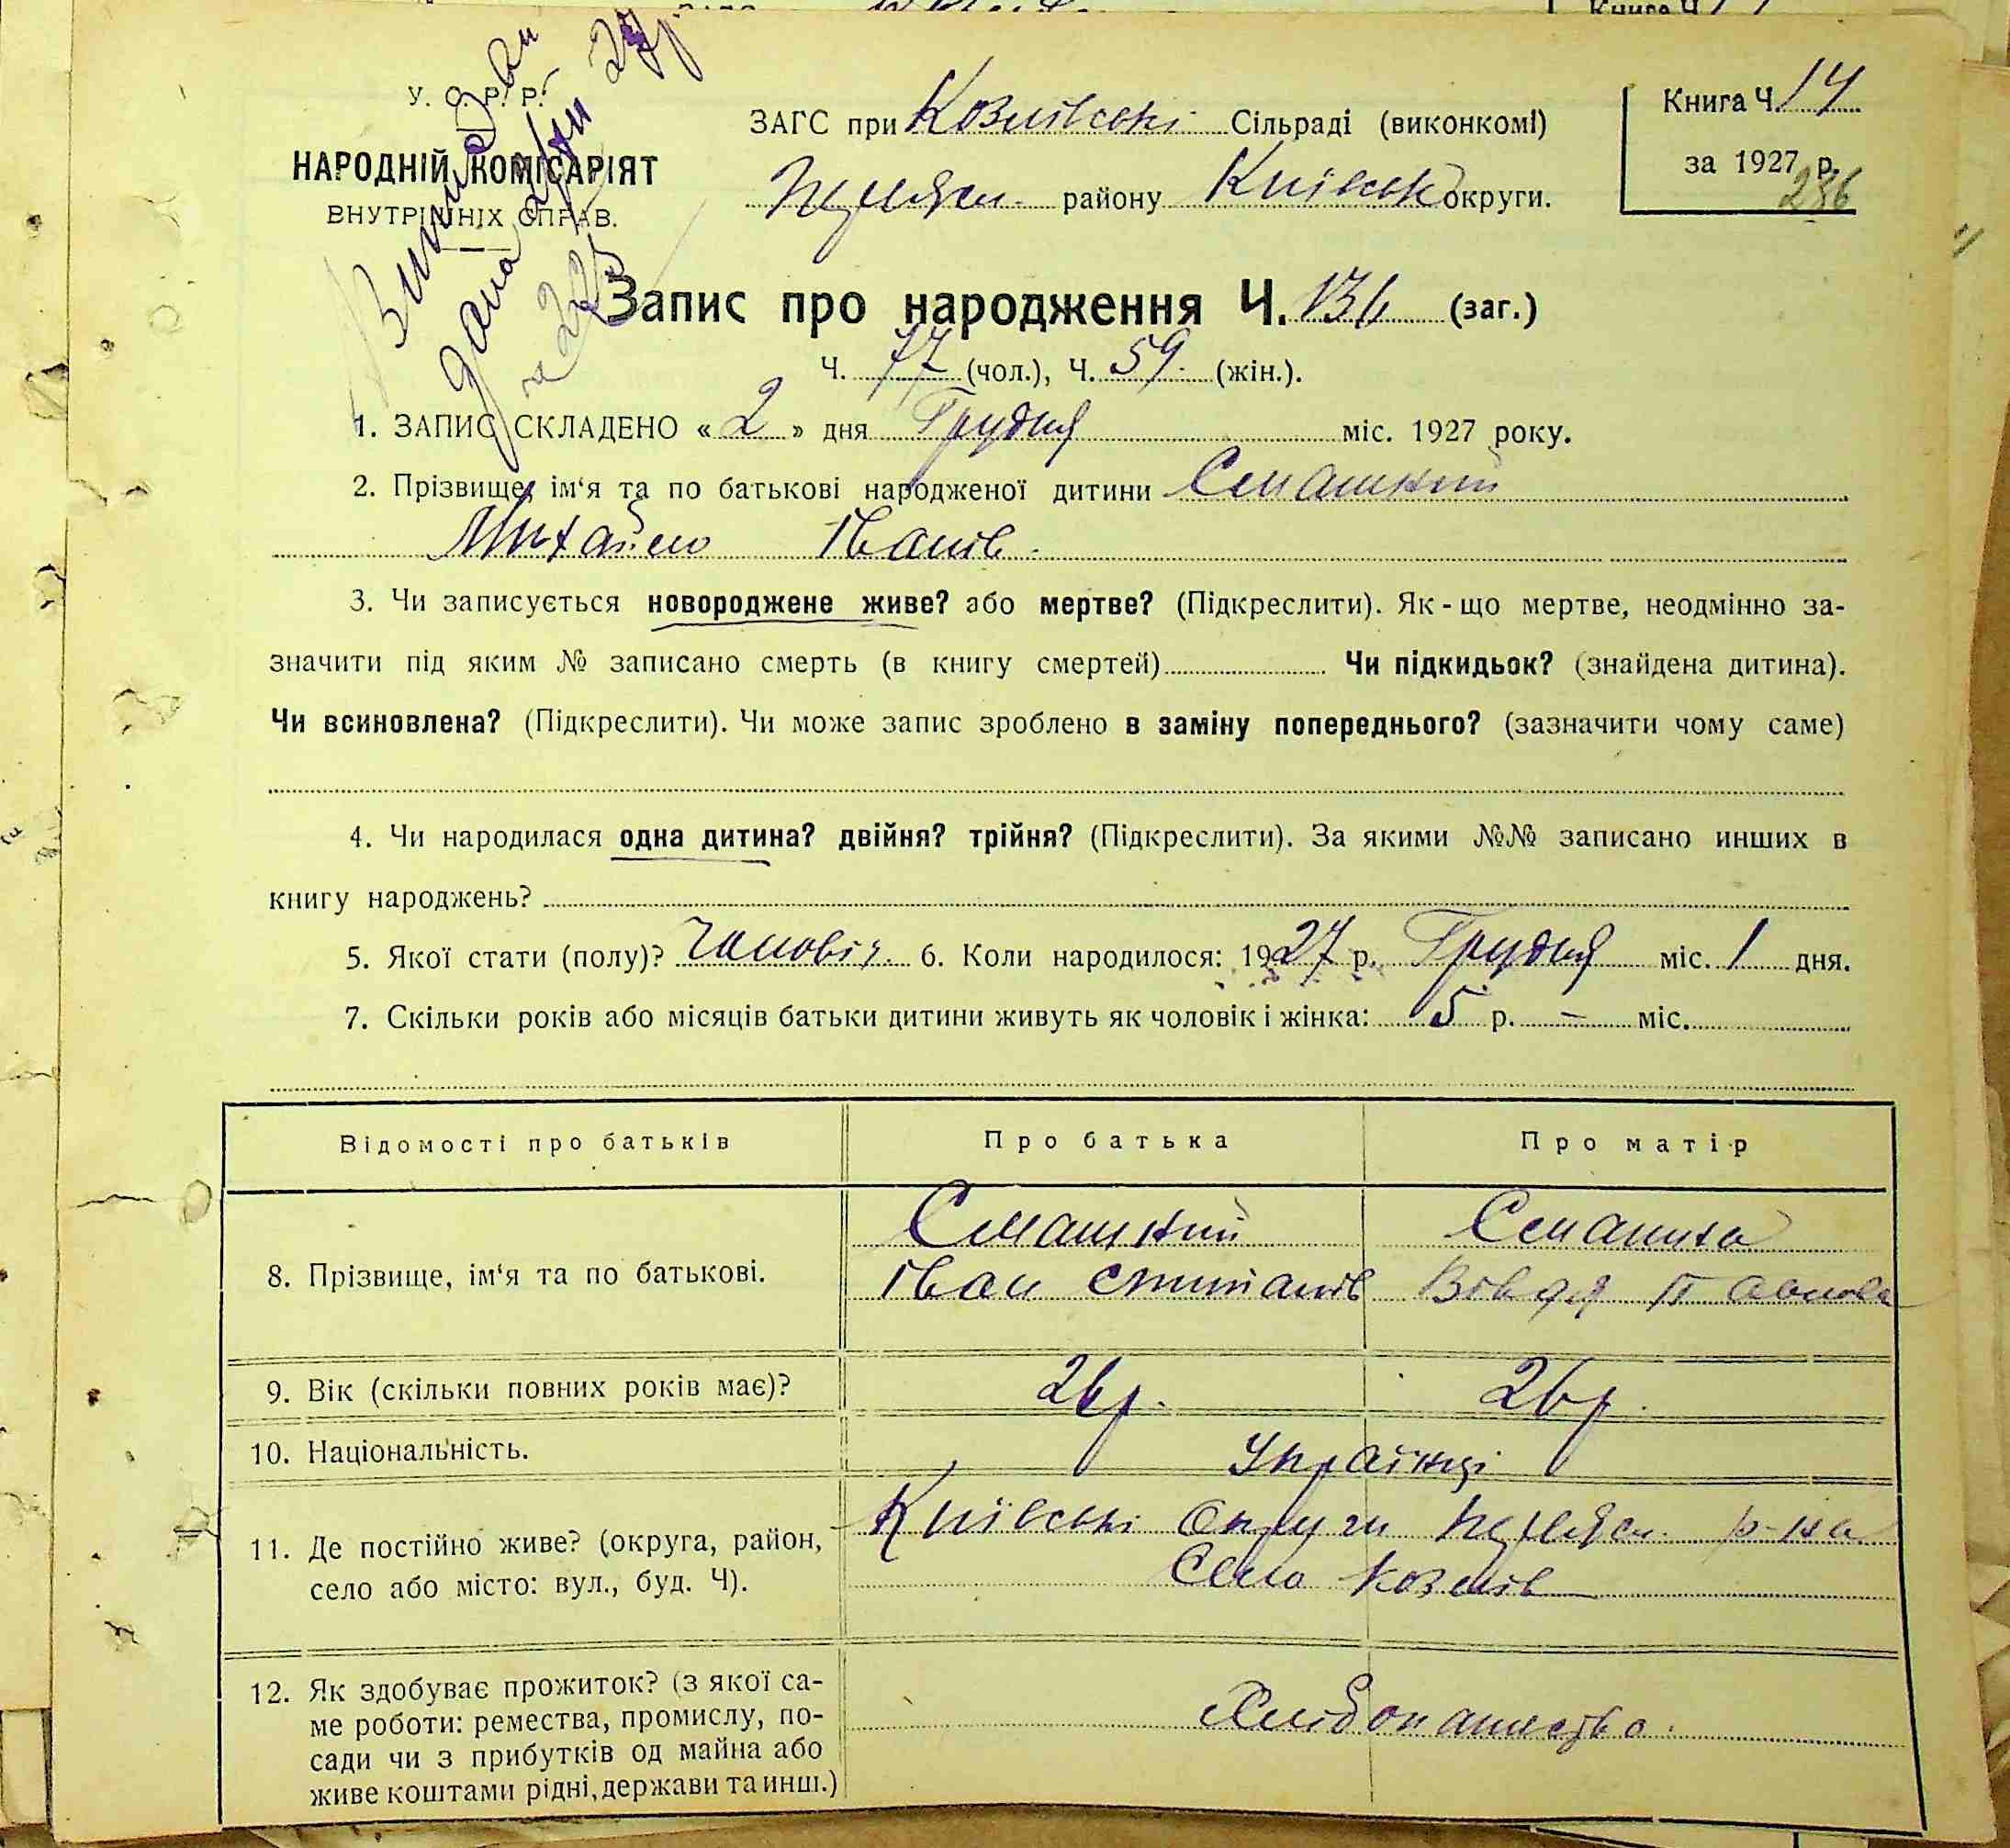 У. С. Р. Р.
НАРОДНІЙ КОМІСАРІЯТ
ВНУТРІШНІХ СПРАВ.
ЗАГС при Козлівські Сільраді (виконкомі)
району Київськ округи.
Книга Ч. 14
за 1927 р.
286
Запис про народження Ч. 136 (заг.)
Ч. 77 (чол.), Ч. 59. (жін.).
1. ЗАПИС СКЛАДЕНО « 2 » дня Грудня міс. 1927 року.
2. Прізвище, ім‘я та по батькові народженої дитини Смашний
Михайло Іванів.
3. Чи записується новороджене живе? або мертве? (Підкреслити). Як-що мертве, неодмінно за-
значити під яким № записано смерть (в книгу смертей) Чи підкидьок? (знайдена дитина).
Чи всиновлена? (Підкреслити). Чи може запис зроблено в заміну попереднього? (зазначити чому саме)
4. Чи народилася одна дитина? двійня? трійня? (Підкреслити). За якими №№ записано инших в
книгу народжень?
5. Якої стати (полу)? Чоловіч. 6. Коли народилося: 1927 р. Грудня міс. 1 дня.
7. Скільки років або місяців батьки дитини живуть як чоловік і жінка: 5 р. – міс.
Відомості про батьків Про батька Про матір
8. Прізвище, ім‘я та по батькові.
Смашний
Іван
Смашна
Вівдя Павлова
9. Вік (скільки повних років має)? 26 р. 26 р.
10. Національність. Українці
11. Де постійно живе? (округа, район,
село або місто: вул., буд. Ч).
Київські Округи р-на
Село Козлів
12. Як здобуває прожиток? (з якої са-
ме роботи: ремества, промислу, по-
сади чи з прибутків од майна або
живе коштами рідні, держави та инш.)
Хлібопашество.